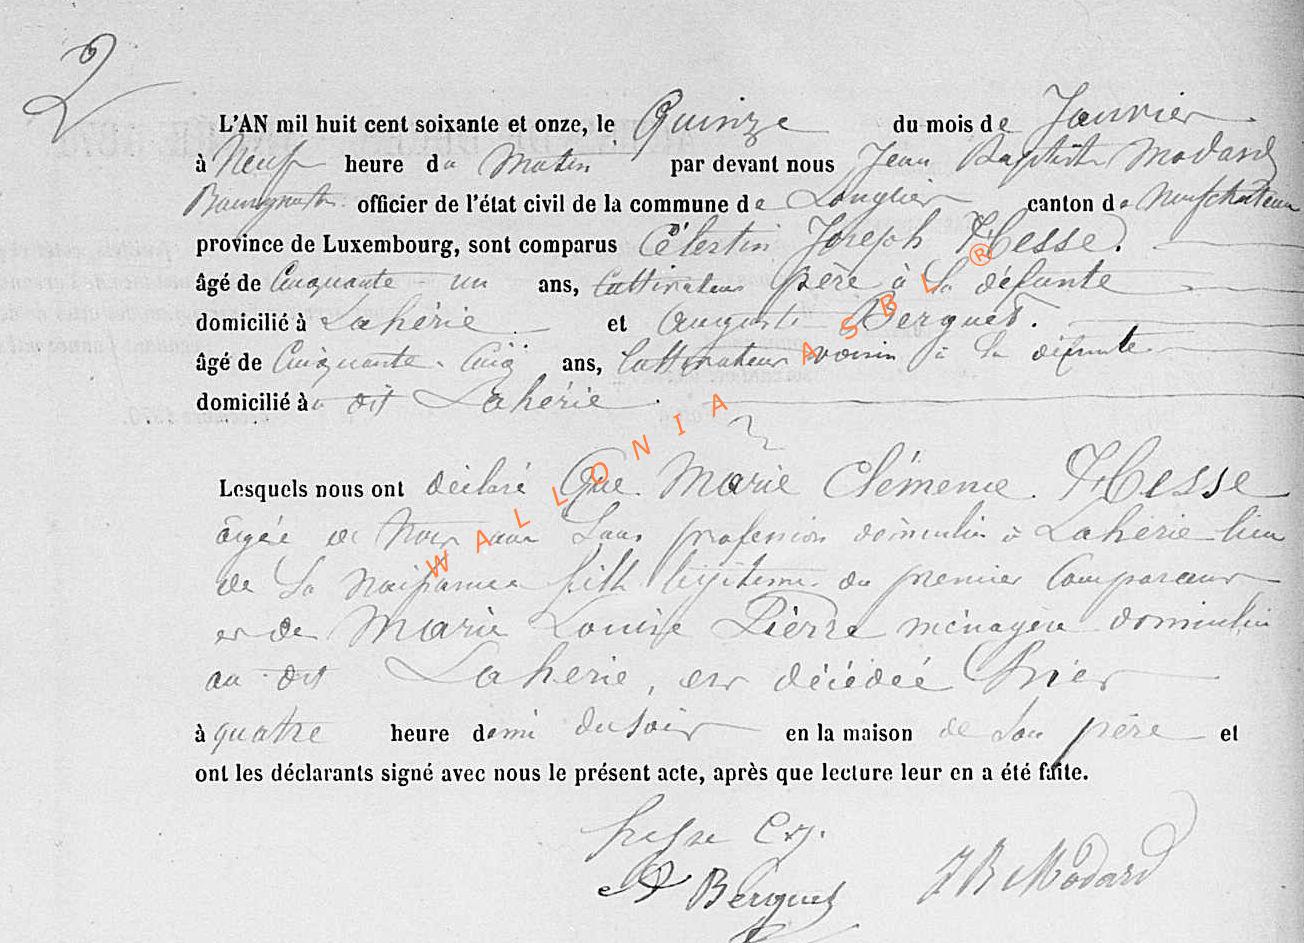 2
L'AN mil huit cent soixante et onze, le Quinze du mois de Janvier
à Neuf heure du Matin par devant nous Jean Baptiste Modard
Bourgmestre officier de l'état civil de la commune de Longlier canton de Neufchateau
province de Luxembourg, sont comparus Célestin Joseph Hesse.
âgé de Cinquante un ans, Cultivateur père à la défunte
domicilié à Lahérie et Auguste Berguet.
âgé de Cinquante Cinq ans, Cultivateur voisin à la défunte
domicilié à dit Lahérie.
Lesquels nous ont déclaré Que Marie Clémence Hesse
âgée de ans Sans profession domicilié à Lahérie lieu
de Sa naissance fille légitime du premier Comparant
et de Marie Louise Pierre ménagère domicilié
au dit Laherie, est décédée hier
à quatre heure demi du soir en la maison de Son père et
ont les déclarants signé avec nous le présent acte, après que lecture leur en a été faite.
hesse C. J.
A Berguet
J B Modard
WALLONIA ASBL ®